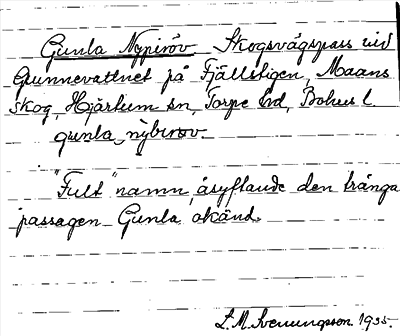 Gunla Nypiröv Skogsvägspass vid
Gunnevattnet på Fjällstigen, Maans
skog, Hjärtum sn, Torpe hd, Bohus l
gunla, nybiröv.
"Fult" namn, åsyftande den trånga
passagen Gunla okänd.
L.M. Svenungsson 1935.